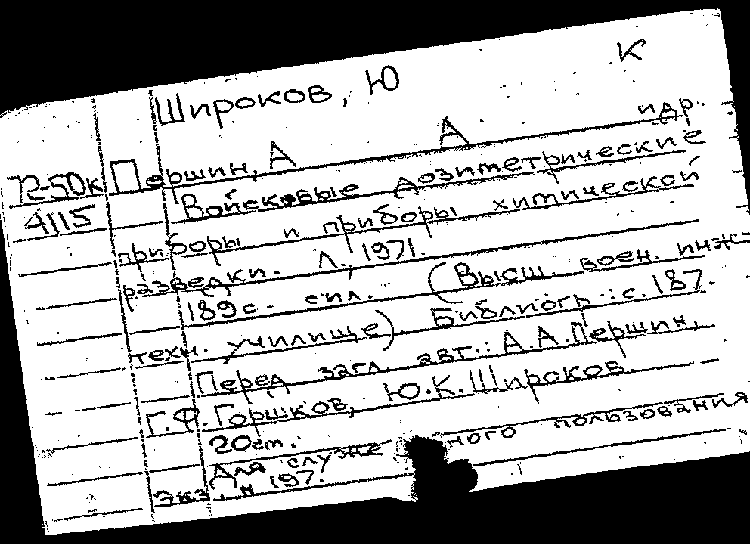 Широков, Ю К
72-50к Першин, А А и др.
4115 Войсковые дозиметрические
приборы и приборы химической
разведки. Л., 1971.
189 с. с ил. (Высш. воен. инж-
техн. училище) Библиогр.: с. 187.
Перед загл. авт.: А.А.Першин,
Г.Ф.Горшков, Ю.К.Широков
20см.
Для служе ного пользования
экз. н 197.